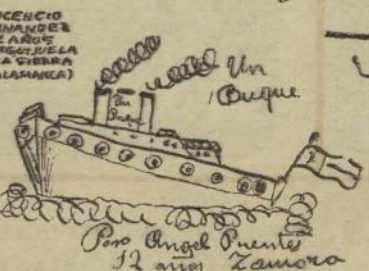 OCENCIO
NANDEZ
AÑOS
EGUIJUELA
LA SIERRA
ALAMANCA)
Un
Buque
Un
Buque
Angel Puentes
12 años Zamora